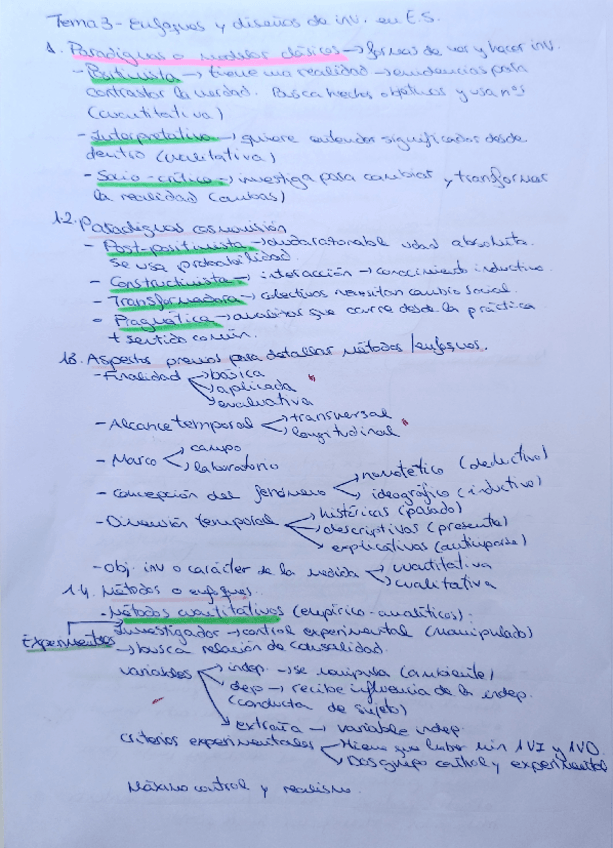 Tema 3 - Enfoques y diseños de inv. en E.S.
1. Paradigmas o modelos clásicos → formas de ver y hacer inv.
- Positivista → tiene una realidad → evidencias para
contrastar la verdad. Busca hechos objetivos y usa nos
(cuantitativa)
- Interpretativa → quiere entender significados desde
dentro (cualitativa)
- Socio-crítico → investiga para cambiar y transformar
la realidad (ambas)
1.2. Paradigmas cosmovisión
- Post-positivista → duda razonable vdad absoluta.
Se usa probabilidad.
- Constructivista → interacción → conocimiento inductivo.
- Transformadora → colectivos necesitan cambio social.
- Pragmática → analizar que ocurre desde la práctica
+ sentido común.
1.3. Aspectos previos para detallar métodos/enfoques.
- Finalidad → básica
→ aplicada
→ evaluativa
- Alcance temporal → transversal
→ longitudinal
- Marco → campo
→ laboratorio
- Concepción del fenómeno → nomotético (deductivo)
→ ideográfico (inductivo)
- Dimensión temporal → históricas (pasado)
→ descriptivas (presente)
→ explicativas
- Obj. inv o carácter de la medida → cuantitativa
→ cualitativa
1.4. Métodos o enfoques
- Métodos cuantitativos (empírico-analíticos):
Experimentos Investigador → control experimental (manipulado)
→ busca relación de causalidad.
variables → indep. → se manipula (ambiente)
→ dep → recibe influencia de la indep.
(conducta de sujeto)
→ extraña → variable indep.
Criterios experimentales → tiene que haber min 1 VI y 1 VD
→ Dos grupo control y experimental
Máximo control y realismo.